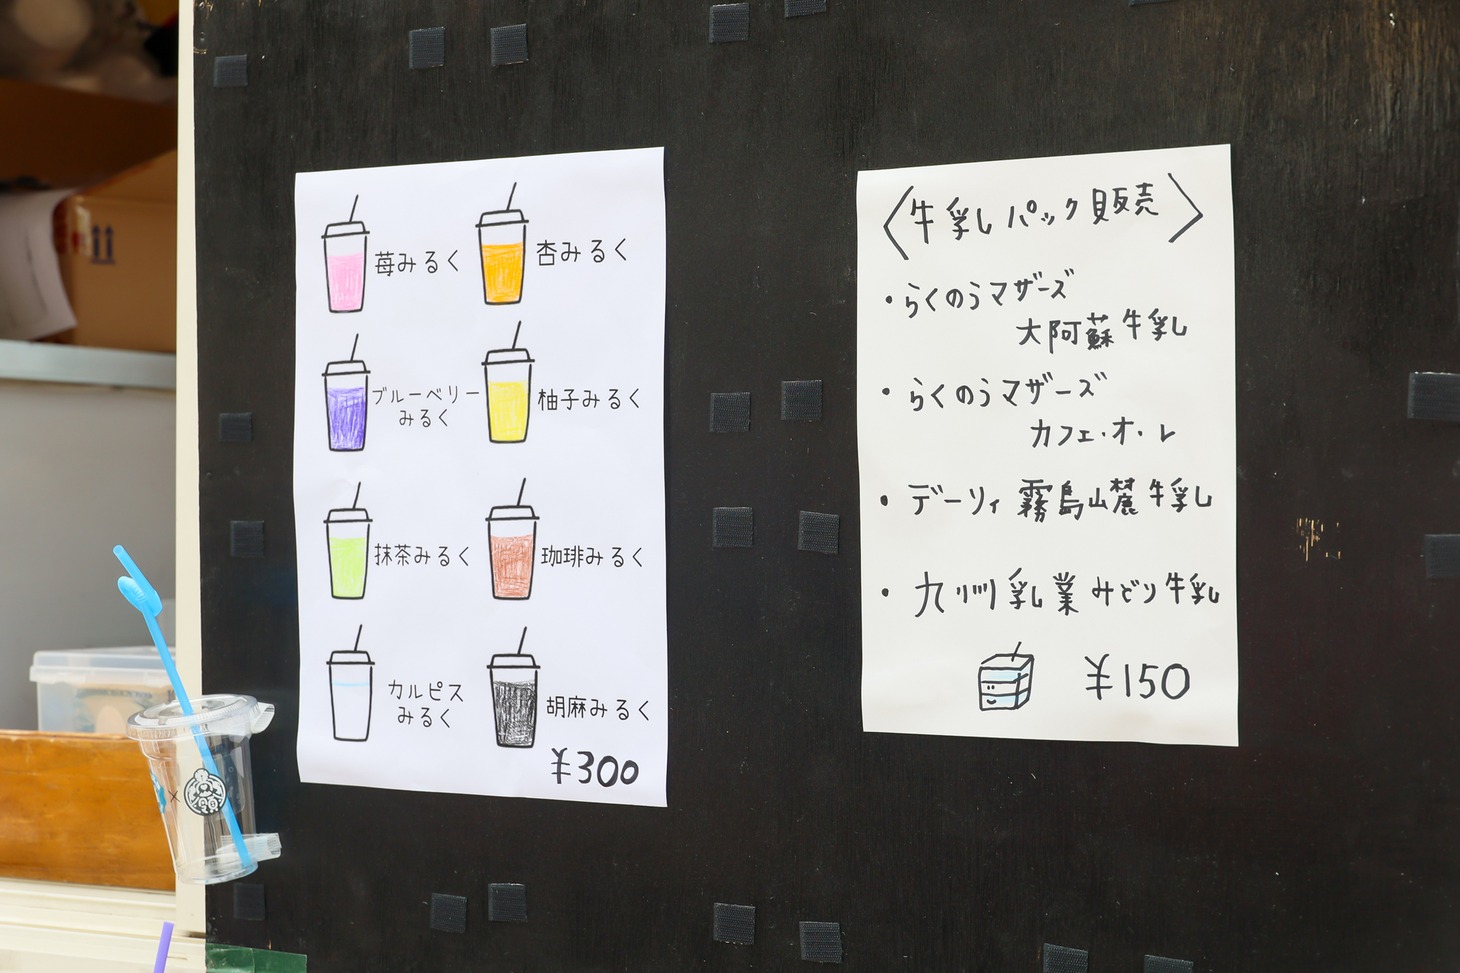 苺みるく
杏みるく
ブルーベリー
みるく
柚子みるく
抹茶みるく
珈琲みるく
カルピス
みるく
胡麻みるく
¥300
〈牛乳パック販売〉
・らくのうマザーズ
大阿蘇牛乳
・らくのうマザーズ
カフェ・オ・レ
・デーリィ 霧島山麓牛乳
・九州乳業みどり牛乳
¥150